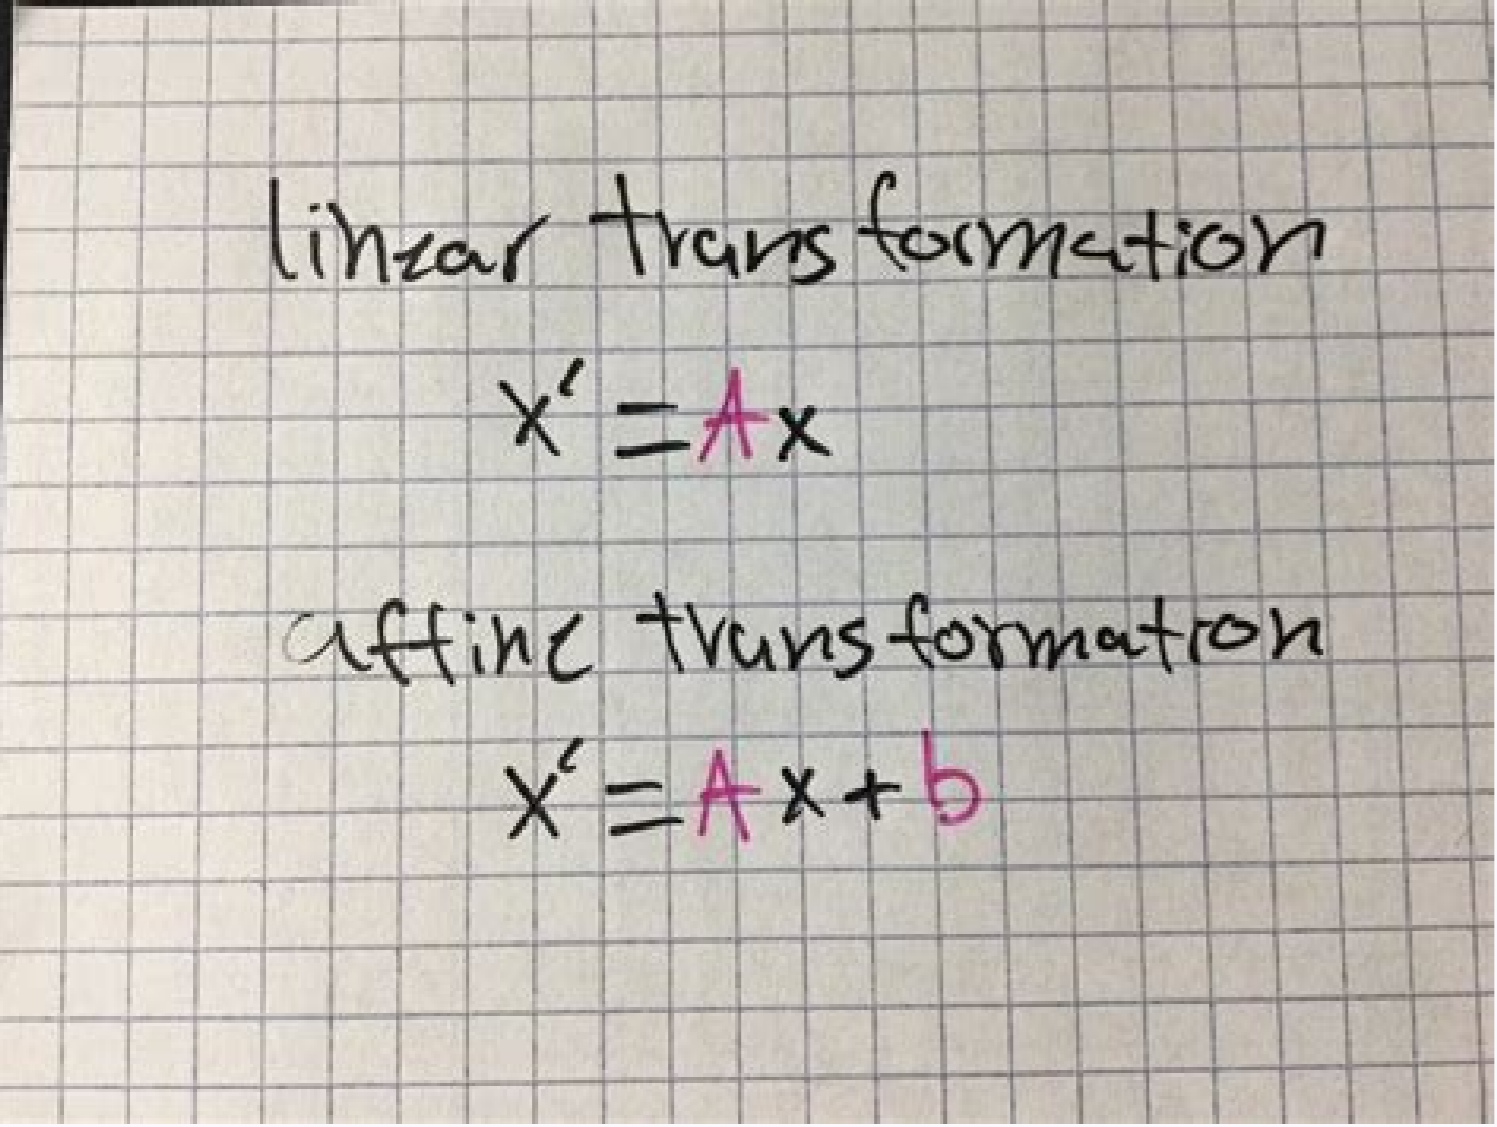 linear transformation
x' = Ax
affine transformation
x' = Ax + b